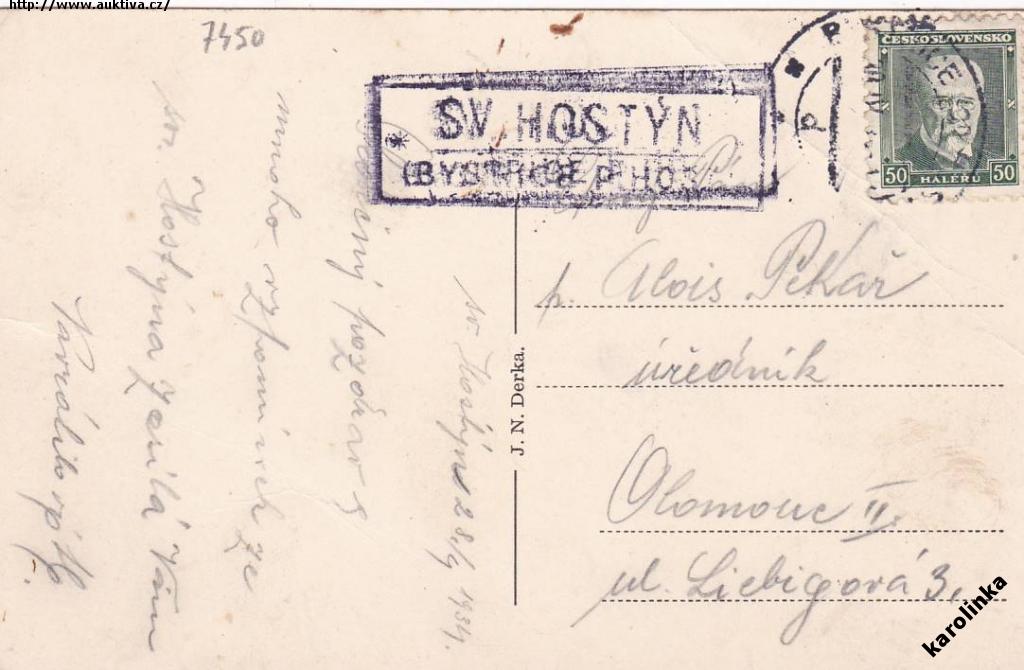 http://www.auktiva.cz/
7450
SV. HOSTÝN
(BYSTŘICE P. HOST.
ČESKOSLOVENSKO
50 HALÉŘŮ 50
p. Alois Pekař
úředník
Olomouc II.
ul. Liebigová 3.
J. N. Derka.
sv. Hostýn 28/9 1934.
pozdrav s
mnoha vzpomínek ze
sv. Hostýna zasílá Vám
karolinka